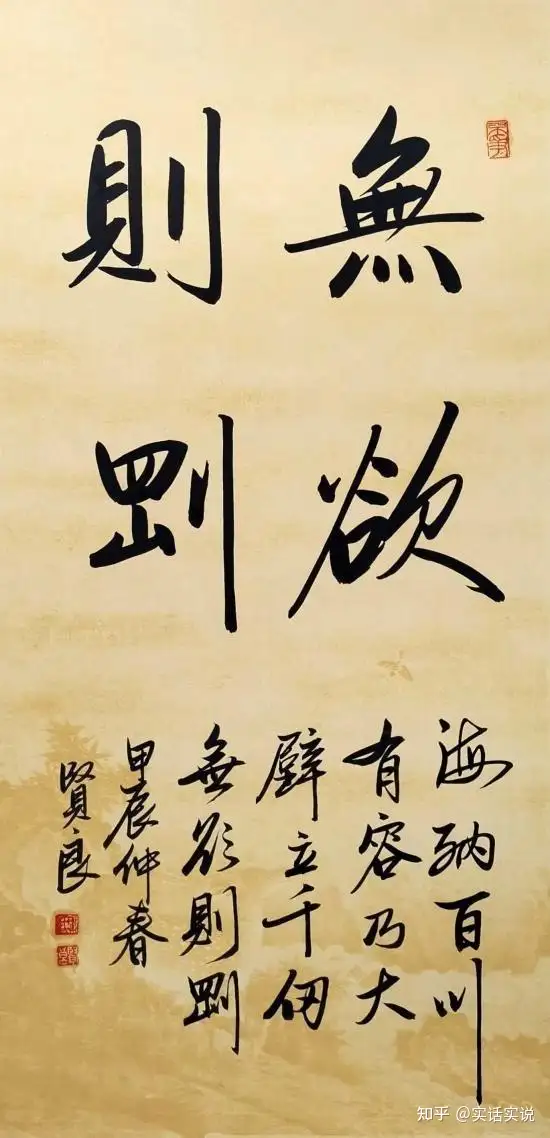 無欲
則剛
海納百川
有容乃大
壁立千仞
無欲則剛
甲辰仲春
賢良
知乎 @实话实说